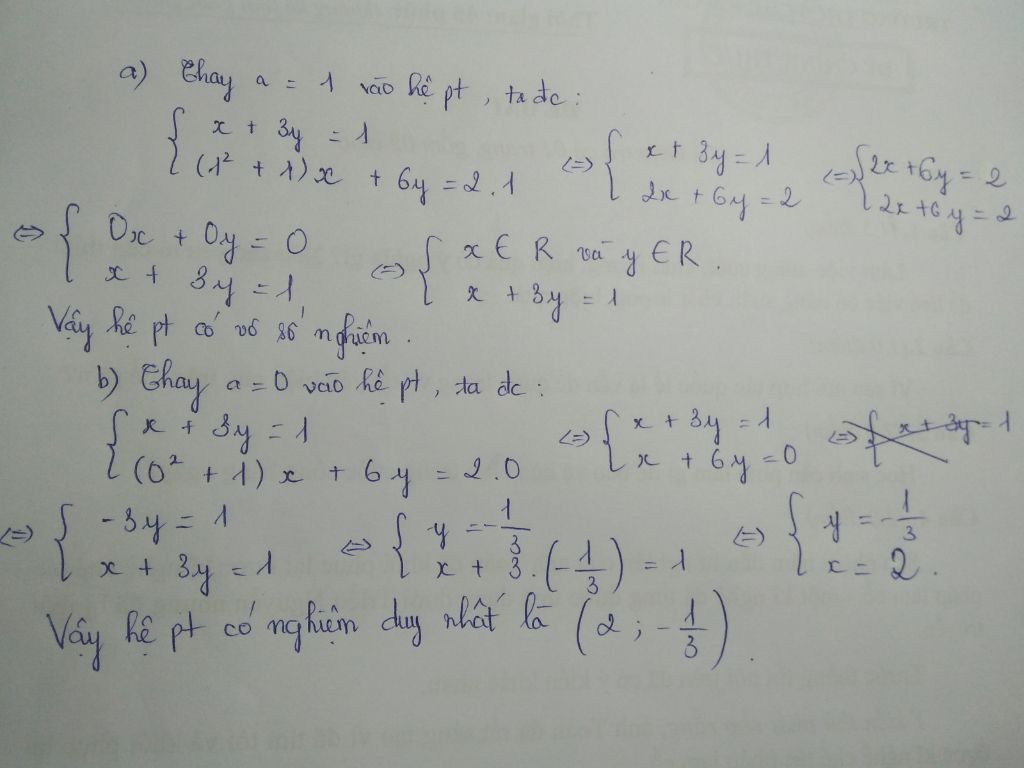 a) Thay a = 1 vào hệ pt, ta đc:
{ x + 3y = 1
(1² + 1)x + 6y = 2.1 <=> { x + 3y = 1
2x + 6y = 2 <=> { 2x + 6y = 2
2x + 6y = 2
<=> { 0x + 0y = 0
x + 3y = 1 <=> { x ∈ R và y ∈ R
x + 3y = 1
Vậy hệ pt có vô số nghiệm.
b) Thay a = 0 vào hệ pt, ta đc:
{ x + 3y = 1
(0² + 1)x + 6y = 2.0 <=> { x + 3y = 1
x + 6y = 0 <=> { x + 3y = 1
<=> { -3y = 1
x + 3y = 1 <=> { y = -1/3
x + 3.(-1/3) = 1 <=> { y = -1/3
x = 2.
Vậy hệ pt có nghiệm duy nhất là (2; -1/3).